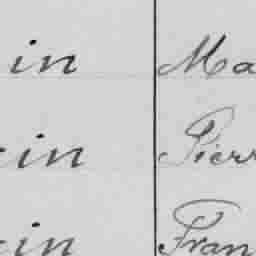 in Ma
in Pier
in Fran